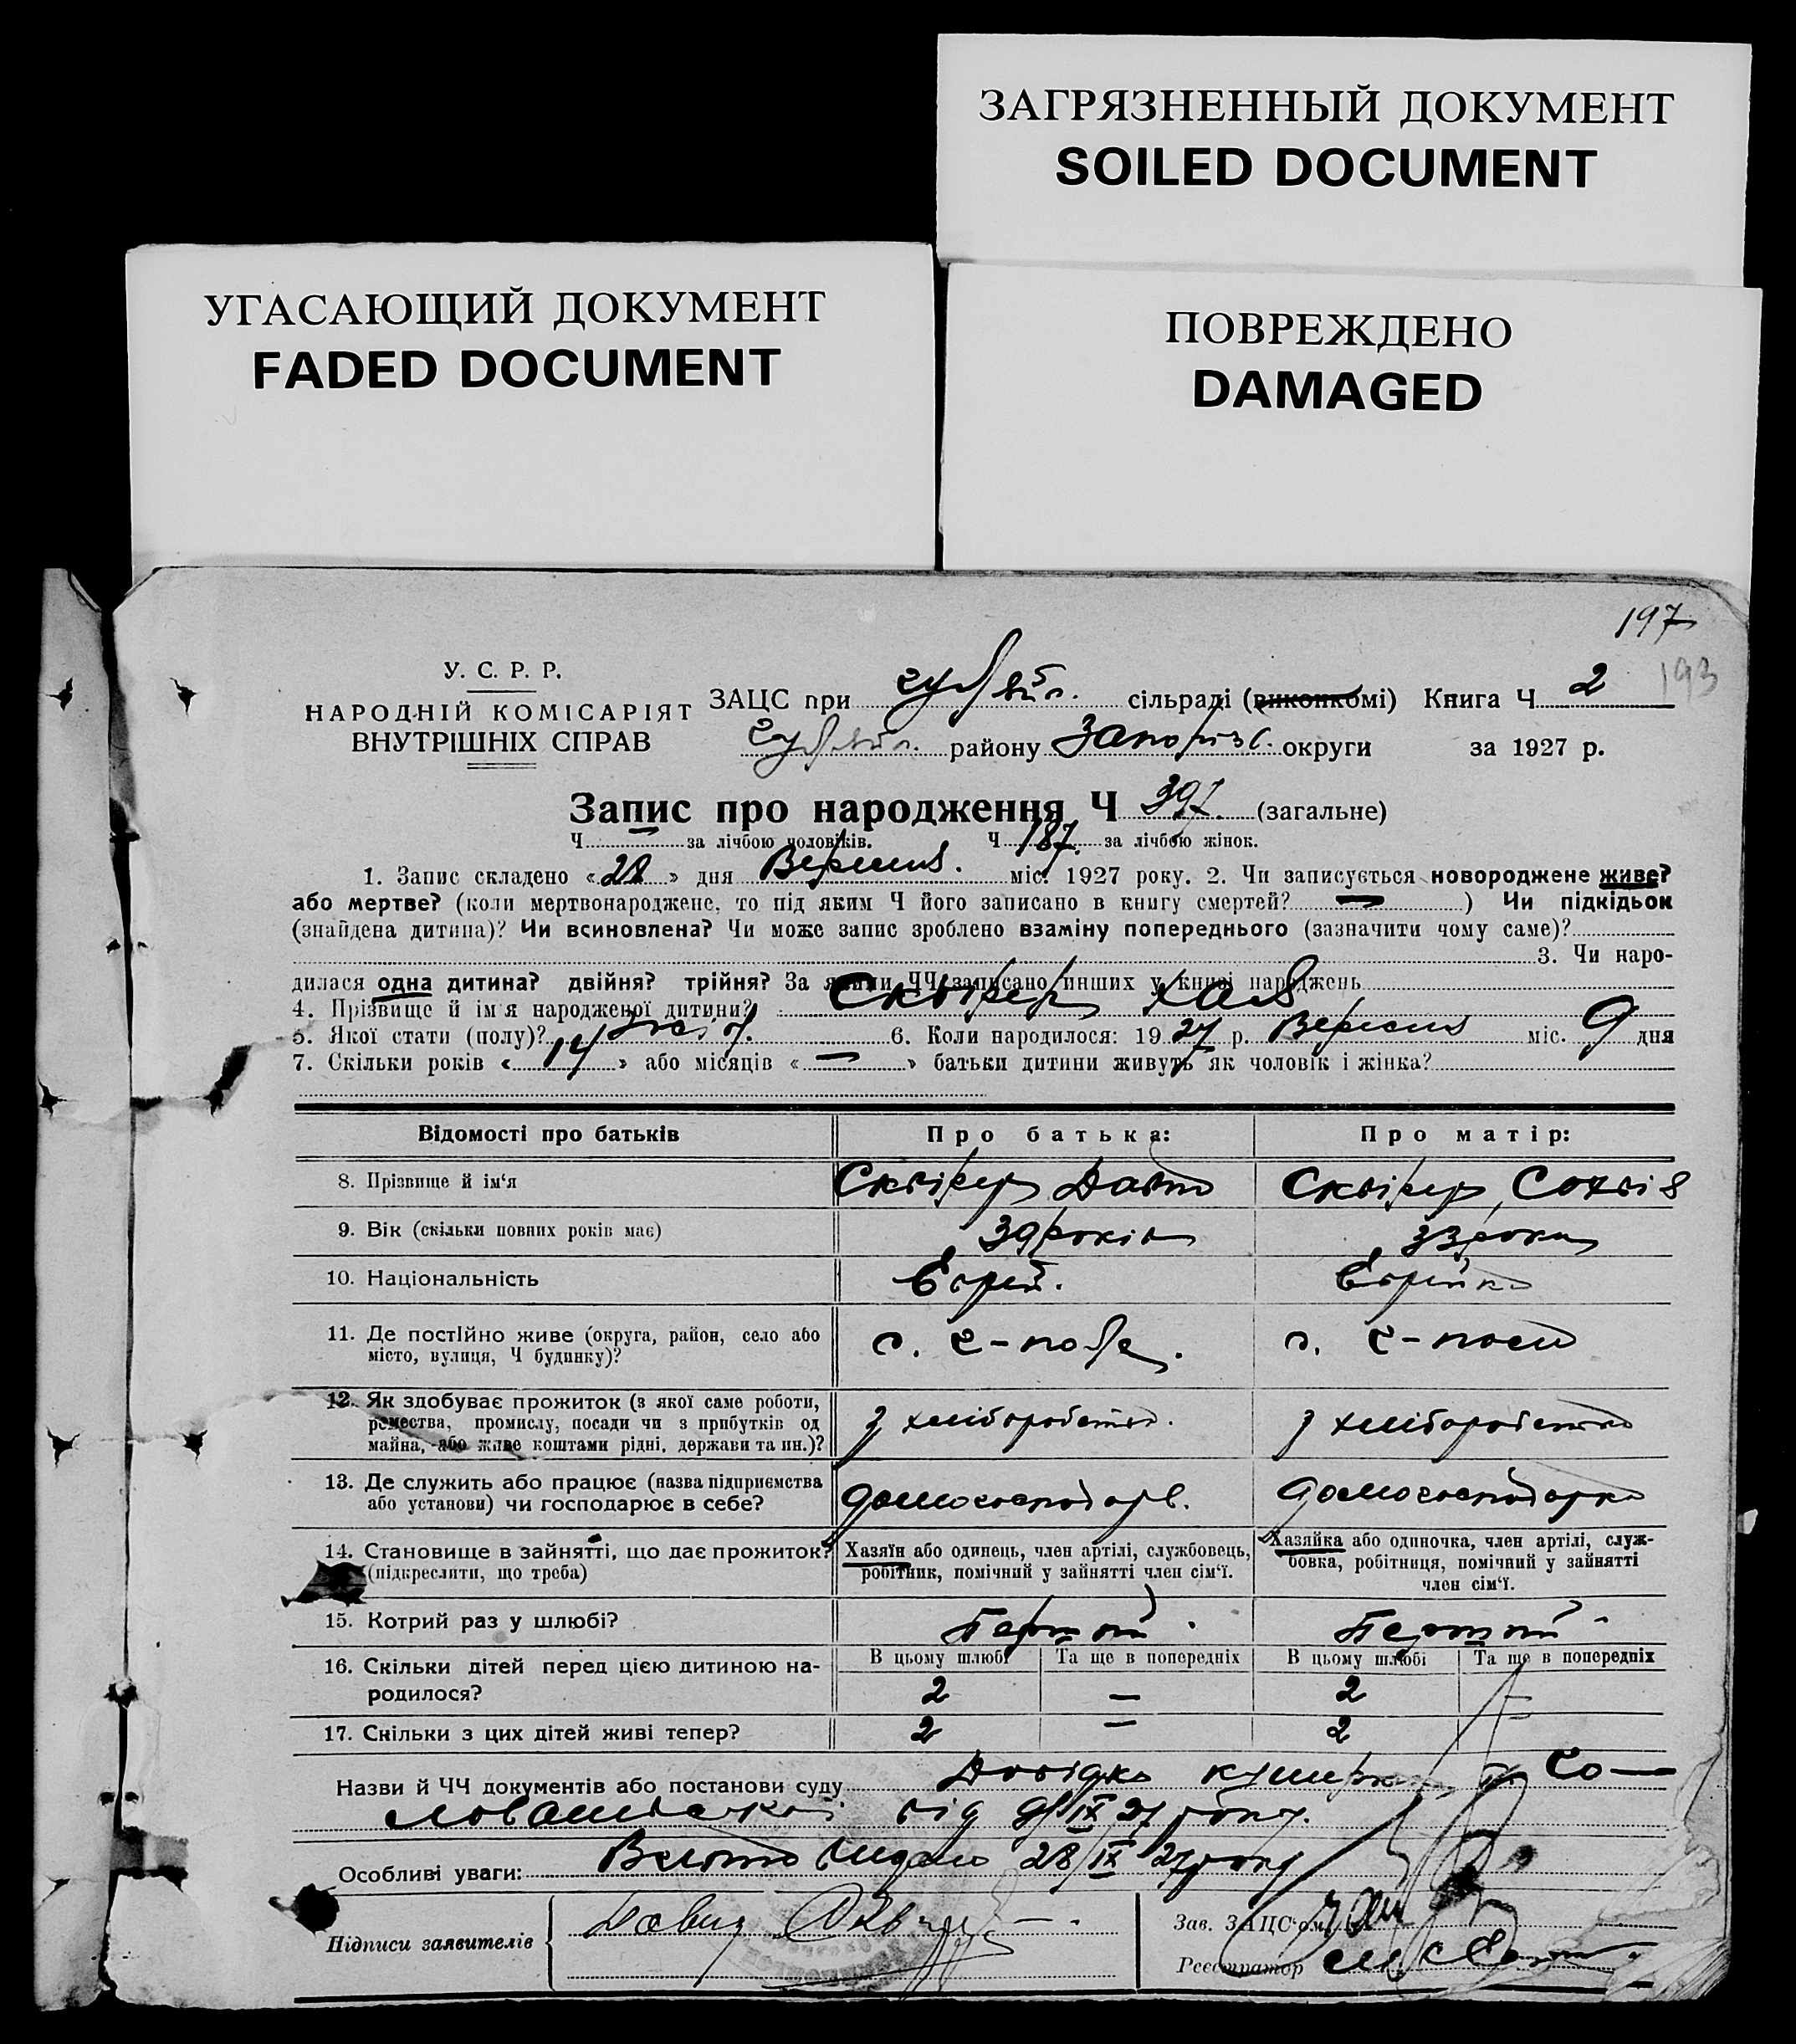 ЗАГРЯЗНЕННЫЙ ДОКУМЕНТ
SOILED DOCUMENT
УГАСАЮЩИЙ ДОКУМЕНТ
FADED DOCUMENT
ПОВРЕЖДЕНО
DAMAGED
197
193
У. С. Р. Р.
НАРОДНІЙ КОМІСАРІЯТ
ВНУТРІШНІХ СПРАВ
ЗАЦС при сільраді (виконкомі) Книга Ч 2
району Запорізь. округи за 1927 р.
Запис про народження Ч 397. (загальне)
Ч — за лічбою чоловіків. Ч 187. за лічбою жінок.
1. Запис складено «28» дня Вересня. міс. 1927 року. 2. Чи записується новороджене живе?
або мертве? (коли мертвонароджене, то під яким Ч його записано в книгу смертей? — ) Чи підкідьок
(знайдена дитина)? Чи всиновлена? Чи може запис зроблено взаміну попереднього (зазначити чому саме)?
3. Чи наро-
дилася одна дитина? двійня? трійня? За якими ЧЧ записано инших у книзі народжень
4. Прізвище й ім'я народженої дитини? Сквірер Хая
5. Якої стати (полу)? жіноч. 6. Коли народилося: 1927 р. Вересня міс. 9 дня
7. Скільки років «14» або місяців «—» батьки дитини живуть як чоловік і жінка?
Відомості про батьків Про батька: Про матір:
8. Прізвище й ім'я Сквірер Давид Сквірер Софія
9. Вік (скільки повних років має) 39 років 33 роки
10. Національність Єврей. Єврейка
11. Де постійно живе (округа, район, село або
місто, вулиця, Ч будинку)?
12. Як здобуває прожиток (з якої саме роботи,
ремества, промислу, посади чи з прибутків од
майна, або живе коштами рідні, держави та ин.)?
з хліборобства. з хліборобства
13. Де служить або працює (назва підприємства
або установи) чи господарює в себе?
домогосподар. домогосподарка
14. Становище в зайнятті, що дає прожиток?
(підкреслити, що треба)
Хазяїн або одинець, член артілі, службовець,
робітник, помічний у зайнятті член сім'ї.
Хазяйка або одиночка, член артілі, служ-
бовка, робітниця, помічний у зайнятті
член сім'ї.
15. Котрий раз у шлюбі? Первий. Первий
В цьому шлюбі Та ще в попередніх В цьому шлюбі Та ще в попередніх
16. Скільки дітей перед цією дитиною на-
родилося? 2 — 2 —
17. Скільки з цих дітей живі тепер? 2 — 2
Назви й ЧЧ документів або постанови суду Довідка
від IX 27 року.
Особливі уваги: видано 28/IX 27 року
Підписи заявителів Давид
Зав. ЗАЦС'ом
Реєстратор